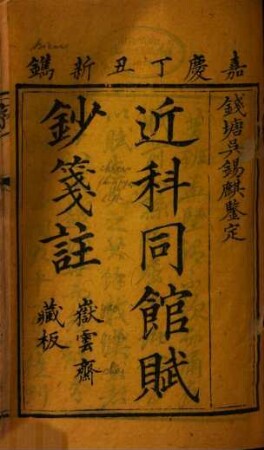 嘉慶丁丑新鐫
錢塘吳錫麒鑒定
近科同館賦
鈔箋註
嶽雲齋
藏板